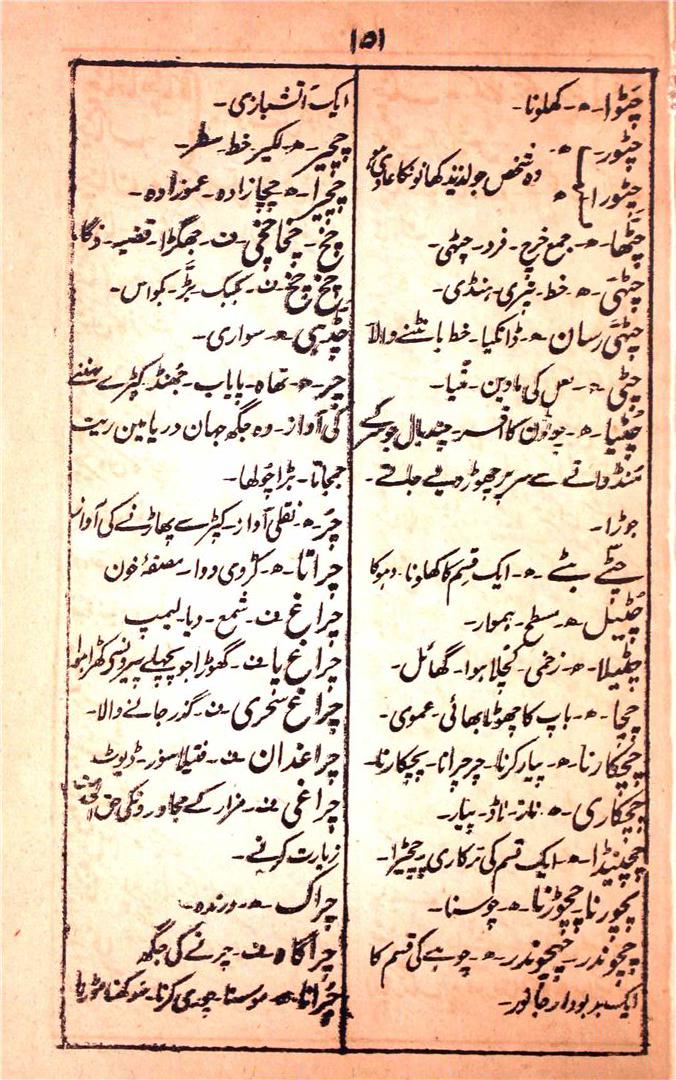 ۱۵۱
چٹوا۔ ھ۔ کھلونا۔
چٹور۔ ھ۔
چٹورا۔ ھ
وہ شخص جو لذیذ کھانونکا عادی ہو
چٹھا۔ ھ۔ جمع خرچ۔ فرد۔ چٹھی۔
چٹھی۔ ھ۔ خط۔ ہنڈی۔
چٹھی رسان۔ ھ۔ ڈاکیا۔ خط بانٹنے والا
چٹی۔ ھ۔ لعل کی مادین۔ مُنیا۔
چُٹیا۔ ھ۔ چورون کا افسر۔ چند بال جو گہ
منڈوانے سے سر پر چھوڑ دیے جاتے۔
جوڑا۔
چٹے بٹے۔ ھ۔ ایک قسم کا کھلونا۔ دھوکا
چٹیل۔ ھ۔ سطح۔ ہموار۔
چٹیلا۔ ھ۔ زخمی۔ کچلا ہوا۔ گھائل۔
چچا۔ ھ۔ باپ کا چھوٹا بھائی۔ عموی۔
چچکارنا۔ ھ۔ پیار کرنا۔ چرچرانا۔ پچکارنا۔
چچکاری۔ ھ۔ ناز۔ لاڈ۔ پیار۔
چچینڈا۔ ھ۔ ایک قسم کی ترکاری۔ چچیڑا۔
چچورنا۔ چچوڑنا۔ ھ۔ چوسنا۔
چچوندر۔ چھچوندر۔ ھ۔ چوہے کی قسم کا
ایک بدبودار جانور۔
ایک آتشبازی۔
چچیر۔ ھ۔ لکیر۔ خط۔ سطر۔
چچیرا۔ ھ۔ چچازادہ۔ عموزادہ۔
چخ۔ چخا چخی۔ ف۔ جھگڑا۔ قضیہ۔ دنگا
چخ چخ۔ ف۔ بک بک۔ بڑ۔ بکواس۔
چڈہی۔ ھ۔ سواری۔
چر۔ ھ۔ تھاہ۔ پایاب۔ جھنڈ۔ کپڑے پھٹنے
کی آواز۔ وہ جگھ جہان دریا مین ریت
جمجاتا۔ بڑا چولھا۔
چر۔ ھ۔ نقلی آواز۔ کپڑے پھاڑنے کی آواز
چراتا۔ ھ۔ کڑوی دوا۔ مصفۂ خون
چراغ۔ ف۔ شمع۔ دیا۔ لیمپ
چراغ پا۔ ف۔ گھوڑا جو پچھلے پیرونسے کھڑا ہوا
چراغ سحری۔ ف۔ گذر جانے والا۔
چراغدان۔ ف۔ فتیلا سوز۔ ڈیوٹ
چراغی۔ ف۔ مزار کے مجاورونکی حق
زیارت کرنے۔
چراک۔ ھ۔ درندہ۔
چراگاہ۔ ف۔ چرنے کی جگھ
چرانا۔ ھ۔ موسنا۔ چوری کرنا۔